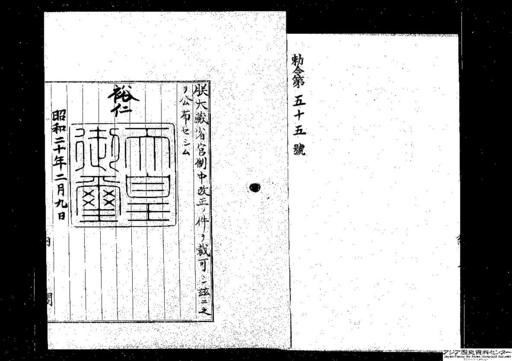 勅令第五十五號
朕大藏省官制中改正ノ件ヲ裁可シ茲ニ之
ヲ公布セシム
裕仁
天皇
御璽
昭和二十年二月九日
内閣
アジア歴史資料センター